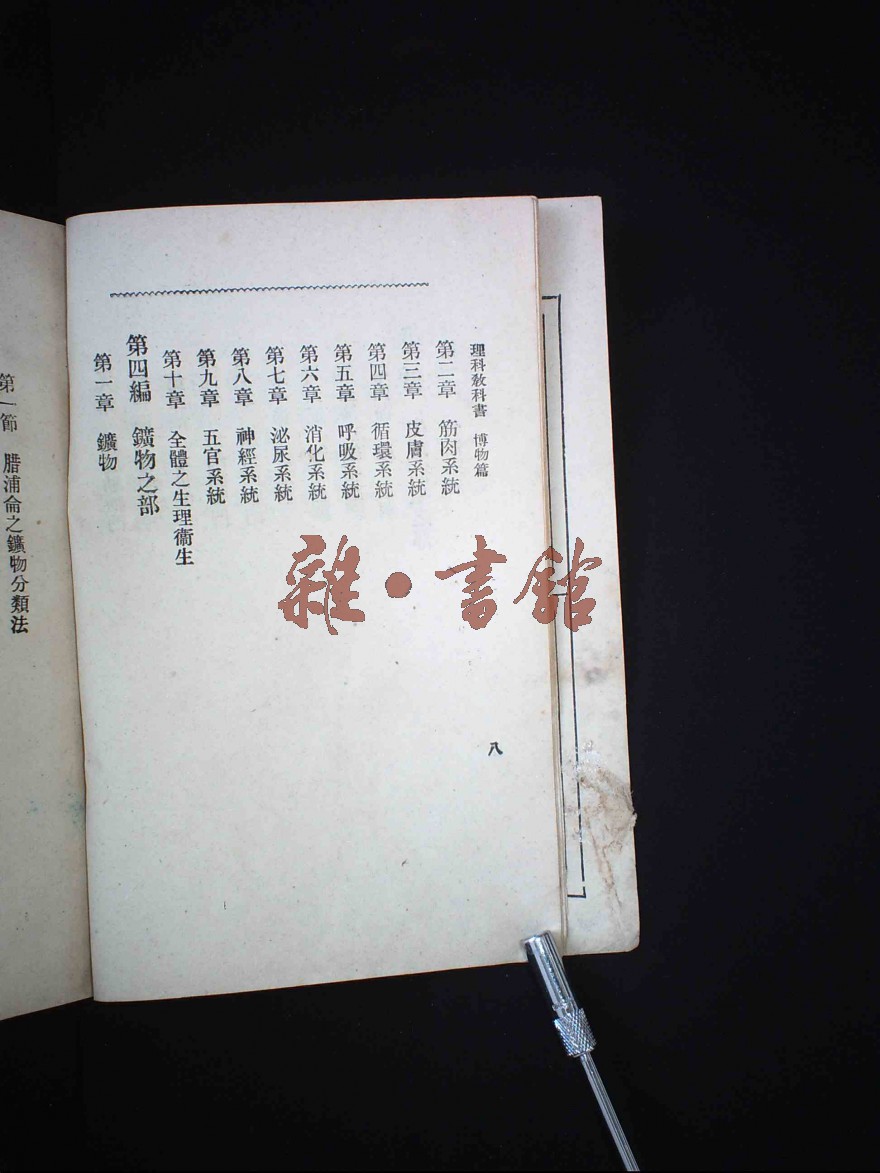 理科教科書 博物篇
八
第二章 筋肉系統
第三章 皮膚系統
第四章 循環系統
第五章 呼吸系統
第六章 消化系統
第七章 泌尿系統
第八章 神經系統
第九章 五官系統
第十章 全體之生理衞生
第四編 鑛物之部
第一章 鑛物
第一節 腊浦侖之鑛物分類法
雜·書館